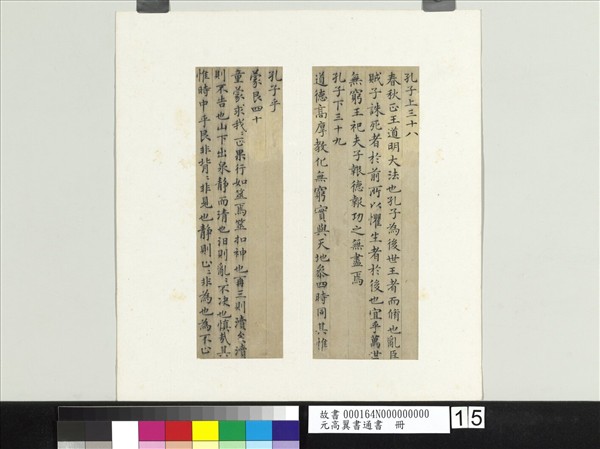 孔子上三十八
春秋正王道明大法也孔子為後世王者而脩也亂臣
賊子誅死者於前所以懼生者於後也宜乎萬世
無窮王祀夫子報德報功之無盡焉
孔子下三十九
道德高厚教化無窮實與天地參四時同其惟
孔子乎
蒙艮四十
童蒙求我〻正果行如筮焉筮扣神也再三則瀆矣瀆
則不告也山下出泉靜而清也汨則亂〻不決也慎哉其
惟時中乎艮非背〻非見也靜則止〻非為也為不止
故書 000164N000000000
元高翼書通書 冊
15